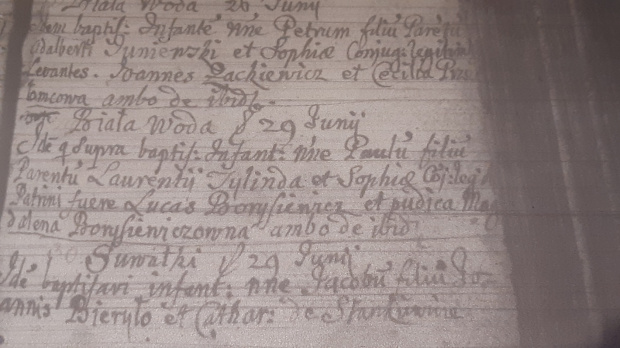 Biała Woda 28 Junij
Idem baptis: Infantē nñe Petrum filiū Parētū
Adalberti Junienski et Sophiæ Conjug: legitim
Levantes. Joannes Lackiewicz et Cecilia
ambo de ibid.
Biała Woda D 29 Junij
Idē q supra baptis: Infant: nñe Paulū filiū
Parentū Laurentij Tylinda et Sophiæ Cõj: leg:
Patrini fuere Lucas Borysiewicz et pudica Mag
dalena Borysiewiczowna ambo de ibid
Suwałki D 29 Junij
Idē baptisavi infant: nñe Jacobū filiū Jo-
annis Bieryło et Cathar: de